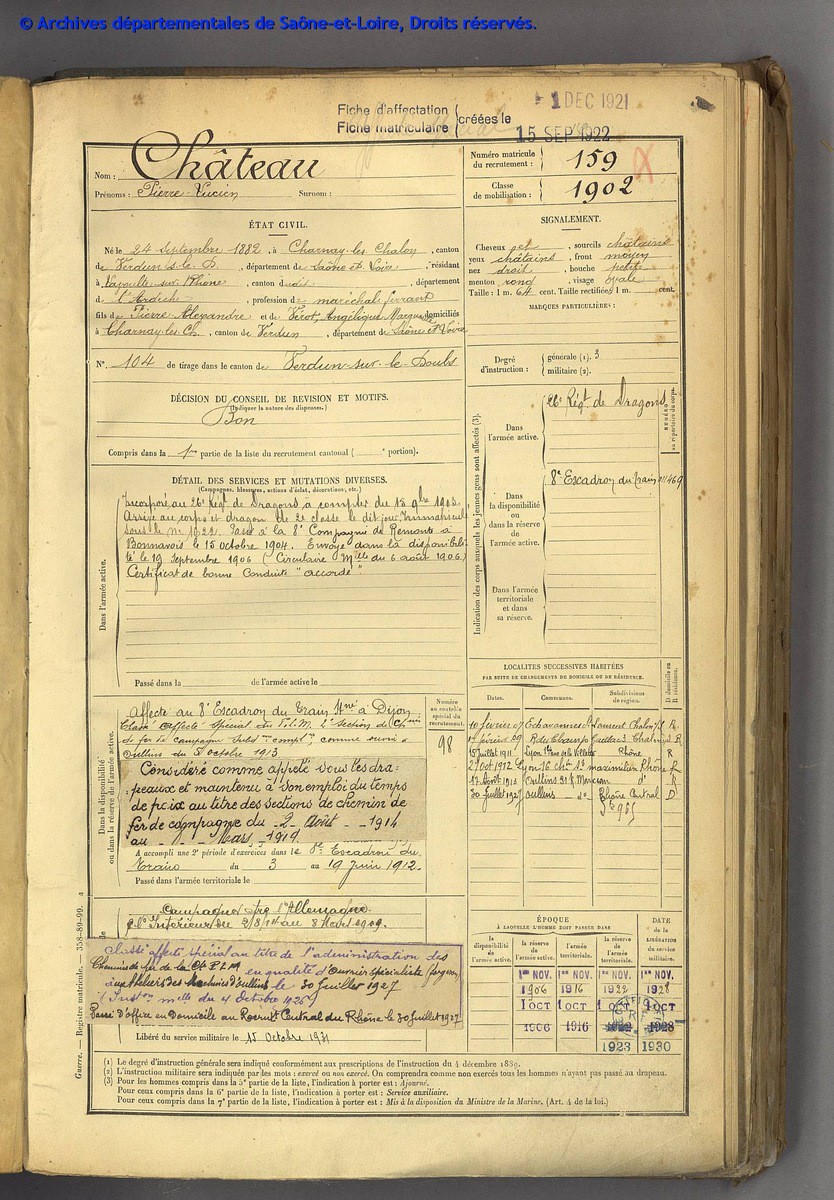 © Archives départementales de Saône-et-Loire, Droits réservés.
Fiche d'affectation
Fiche matriculaire
créées le
1 DEC 1921
15 SEP 1922
Nom : Château
Prénoms : Pierre Lucien Surnom :
Numéro matricule du recrutement : 159
Classe de mobilisation : 1902
ÉTAT CIVIL.
Né le 24 septembre 1882, à Charnay-les-Chalon, canton
de Verdun s-le-D, département de Saône et Loire, résidant
à Lavoulte-sur-Rhône, canton dudit, département
de l'Ardèche, profession de maréchal ferrant
fils de Pierre Alexandre et de Vérot, Angélique Marguerite domiciliés
à Charnay-les-Ch., canton de Verdun, département de Saône et Loire
N°. 104 de tirage dans le canton de Verdun-sur-le-Doubs
SIGNALEMENT.
Cheveux et, sourcils châtains
yeux châtains, front moyen
nez droit, bouche petite
menton rond, visage ovale
Taille : 1 m. 64 cent. Taille rectifiée : 1 m. cent.
MARQUES PARTICULIÈRES :
Degré d'instruction :
générale (1). 3
militaire (2).
DÉCISION DU CONSEIL DE REVISION ET MOTIFS.
(Indiquer la nature des dispenses.)
Bon
Compris dans la 1re partie de la liste du recrutement cantonal ( portion).
DÉTAIL DES SERVICES ET MUTATIONS DIVERSES.
(Campagnes, blessures, actions d'éclat, décorations, etc.)
Dans l'armée active.
Incorporé au 26e Régt de Dragons à compter du 15 9bre 1903.
Arrivé au corps et dragon de 2e classe le dit jour. Immatriculé
sous le n° 1922. Passé à la 8e Compagnie de Remonte à
Bonnavois le 15 octobre 1904. Envoyé dans la disponibili-
té le 19 septembre 1906 (Circulaire Mlle du 6 août 1906)
Certificat de bonne Conduite "accordé"
Passé dans la de l'armée active le
Indication des corps auxquels les jeunes gens sont affectés (3).
Dans l'armée active.
26e Régt de Dragons
NUMÉRO au répertoire du corps.
Dans la disponibilité ou dans la réserve de l'armée active.
8e Escadron du train 469
Dans l'armée territoriale et dans sa réserve.
Dans la disponibilité ou dans la réserve de l'armée active.
Affecté au 8e Escadron du Train à Dijon
Classé Affecté Spécial du P.L.M. Section de Ch.ins
de fer de campagne, comme ouvrier
Oullins du 5 octobre 1913
Considéré comme appelé sous les dra-
peaux et maintenu à son emploi du temps
de paix au titre des sections de chemin de
fer de campagne du 2 Août 1914
au Mars 1919.
A accompli une 2e période d'exercices dans le 8e Escadron du
Train du 3 au 19 Juin 1912.
Passé dans l'armée territoriale le
Numéro au contrôle spécial du recrutement.
98
LOCALITÉS SUCCESSIVES HABITÉES
PAR SUITE DE CHANGEMENTS DE DOMICILE OU DE RÉSIDENCE.
Dates. Communes. Subdivisions de région. D domicile ou R résidence.
10 février 07 Laurent Chalon R
1er février 09 Chalon R
15 juillet 1911 Lyon Rhône R
21 Oct 1912 Lyon maximilien Rhône R
17 Août 1913 Oullins 31 R. Marceau d° R
30 Juillet 1927 Oullins d° Rhône Central D
Campagne contre l'Allemagne
Intérieur du 2/8/14 au 8 Mars 1919.
Classé affecté spécial au titre de l'administration des
Chemins de fer de la Cie P L M en qualité d'Ouvrier spécialiste (forgeron)
aux Ateliers des Machines d'Oullins le 30 Juillet 1927
(Inston mlle du 4 Octobre 1926)
Passé d'office en Domicile au Recrutt Central du Rhône le 30 juillet 1927
Libéré du service militaire le 15 Octobre 1931
ÉPOQUE
À LAQUELLE L'HOMME DOIT PASSER DANS
la disponibilité de l'armée active. la réserve de l'armée active. l'armée territoriale. la réserve de l'armée territoriale.
DATE de la LIBÉRATION du service militaire.
1er NOV. 1er NOV. 1er NOV. 1er NOV.
1906 1916 1922 1928
1 OCT 1 OCT 1 OCT 1 OCT
1906 1916 1922 1928
1923 1930
Guerre. — Registre matricule. — 358-89-99.
(1) Le degré d'instruction générale sera indiqué conformément aux prescriptions de l'instruction du 4 décembre 1889.
(2) L'instruction militaire sera indiquée par les mots : exercé ou non exercé. On comprendra comme non exercés tous les hommes n'ayant pas passé au drapeau.
(3) Pour les hommes compris dans la 5e partie de la liste, l'indication à porter est : Ajourné.
Pour ceux compris dans la 6e partie de la liste, l'indication à porter est : Service auxiliaire.
Pour ceux compris dans la 7e partie de la liste, l'indication à porter est : Mis à la disposition du Ministre de la Marine. (Art. 4 de la loi.)